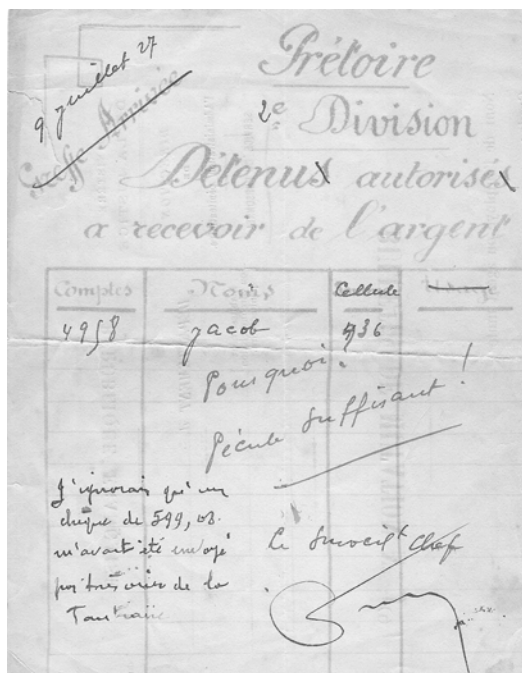 9 juillet 27
Greffe Arrivée
Prétoire
2e Division
Détenus autorisés
a recevoir de l'argent
Comptes Noms Cellule
4958 Jacob 436
Pourquoi?
Pécule suffisant!
J'ignorais qu'un
chèque de 599,03.
m'avait été envoyé
par trésorier de la
Le Surveilt Chef